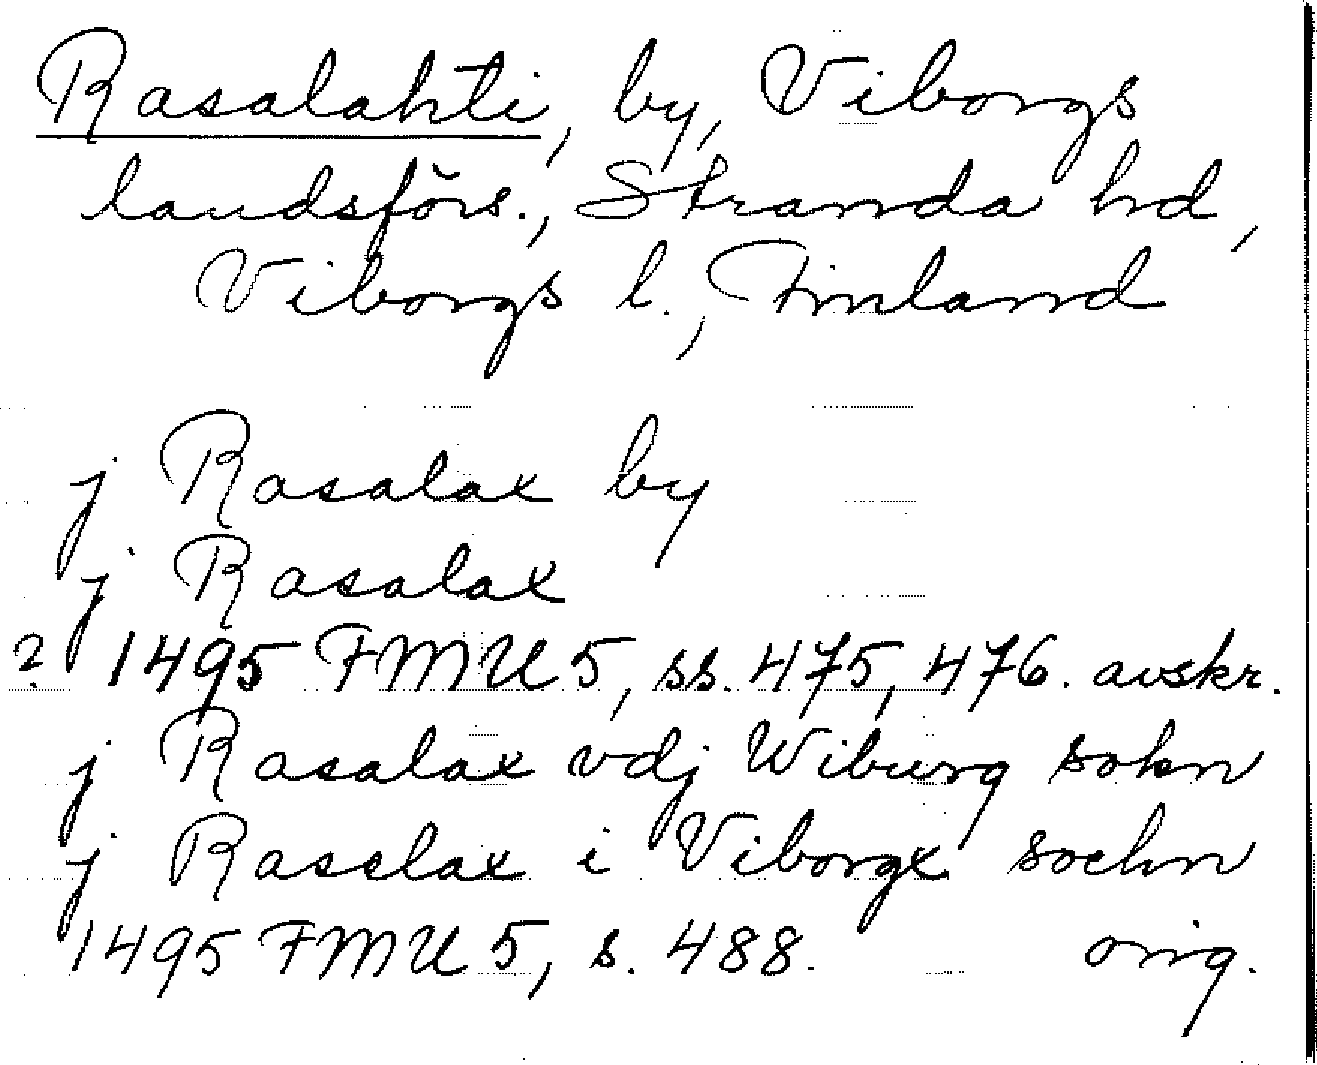 Rasalahti, by, Viborgs
landsförs., Stranda hd,
Viborgs l., Finland
j Rasalax by
j Rasalax
? 1495 FMU 5, ss. 475, 476. avskr.
j Rasalax vdj Wiburg sokn
j Rasselax i Viborgx sochn
1495 FMU 5, s. 488. orig.